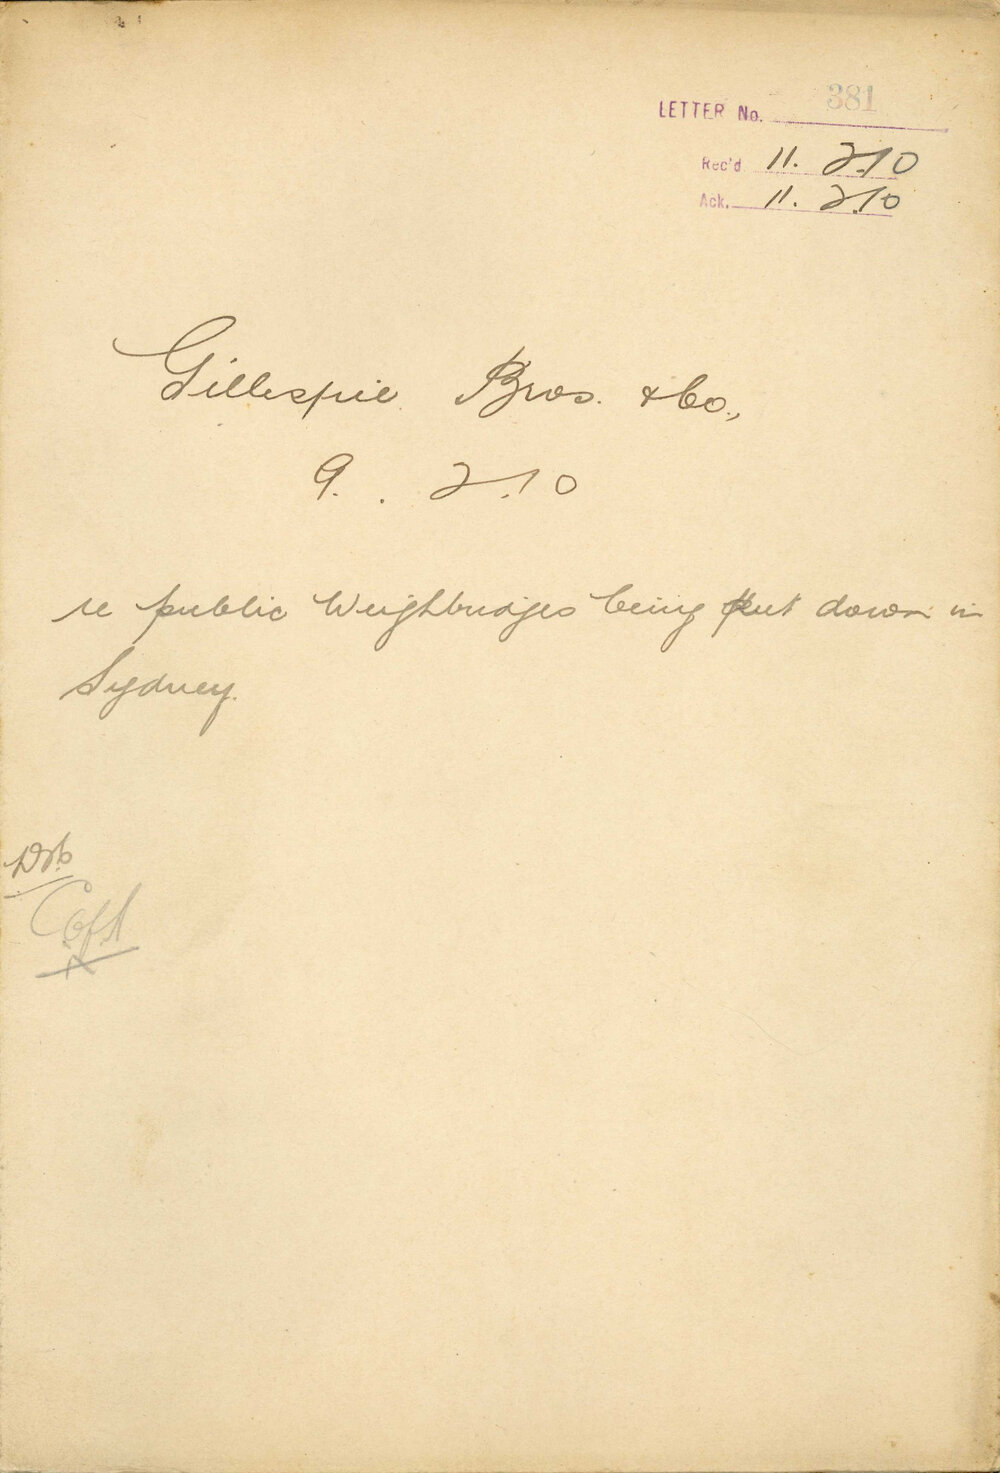 LETTER No. 381
Rec'd 11. 2.10
Ack. 11. 2.10
Gillespie Bros. & Co.,
9. . 2.10
re public Weighbridges being put down in
Sydney.